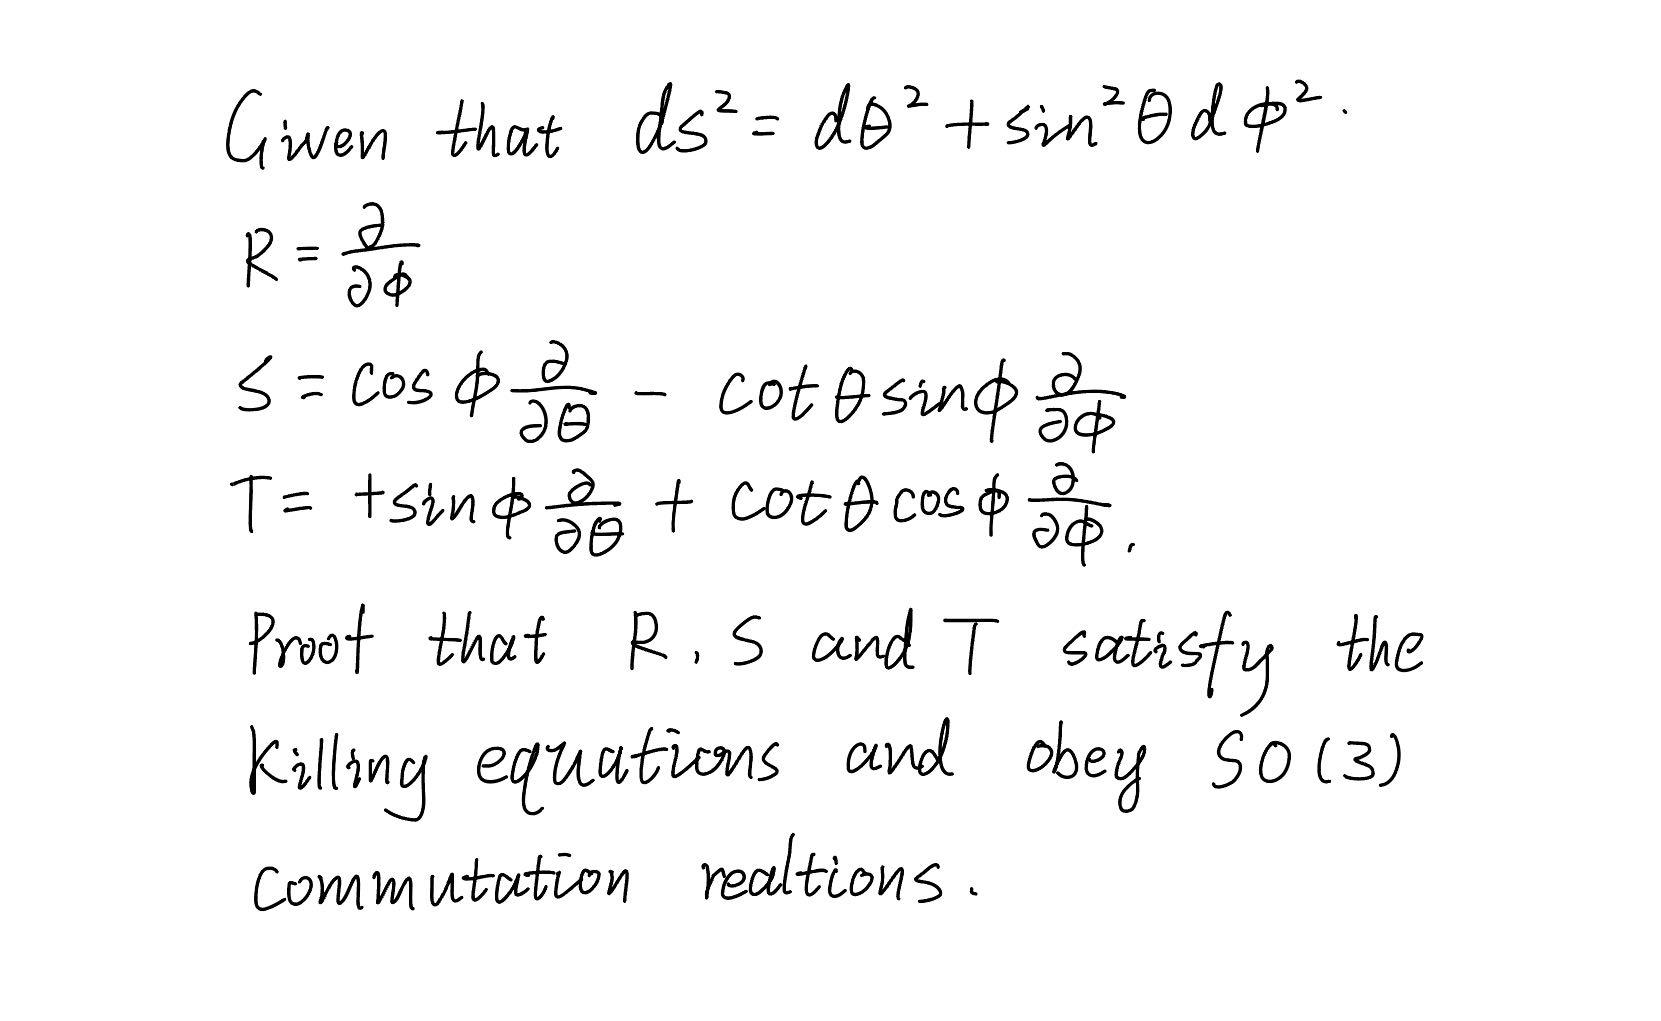 Given that ds² = dθ² + sin²θ dϕ².
R = ∂/∂ϕ
S = cos ϕ ∂/∂θ − cot θ sin ϕ ∂/∂ϕ
T = +sin ϕ ∂/∂θ + cot θ cos ϕ ∂/∂ϕ.
Proof that R, S and T satisfy the
Killing equations and obey SO(3)
commutation realtions.